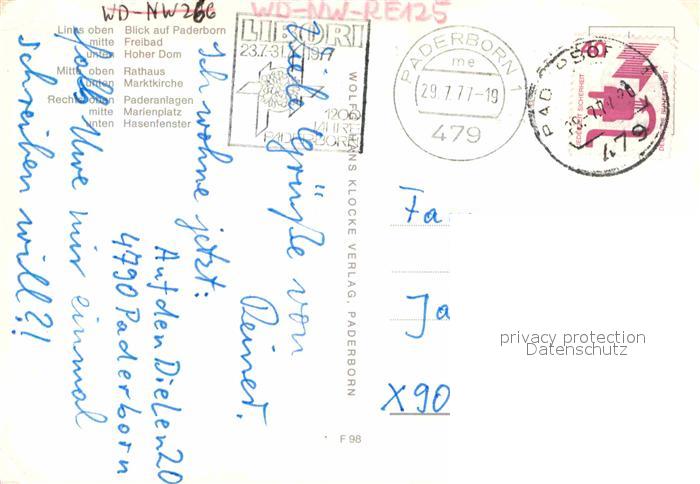 WD-NW266
WD-NW-RE125
Links oben Blick auf Paderborn
mitte Freibad
unten Hoher Dom
Mitte oben Rathaus
unten Marktkirche
Rechts oben Paderanlagen
mitte Marienplatz
unten Hasenfenster
LIBORI
23.7.-31.7.1977
1200
JAHRE
PADERBORN
PADERBORN 1
me
29.7.77-19
479
PADERBORN 1
479
60
JEDERZEIT SICHERHEIT
DEUTSCHE BUNDESPOST
Viele Grüße von
Reiner.
Ich wohne jetzt:
Auf den Dielen 20
4790 Paderborn
falls Uwe mir einmal
schreiben will?!
WOLFGANG HANS KLOCKE VERLAG, PADERBORN
Fa
Ja
X90
privacy protection
Datenschutz
F 98